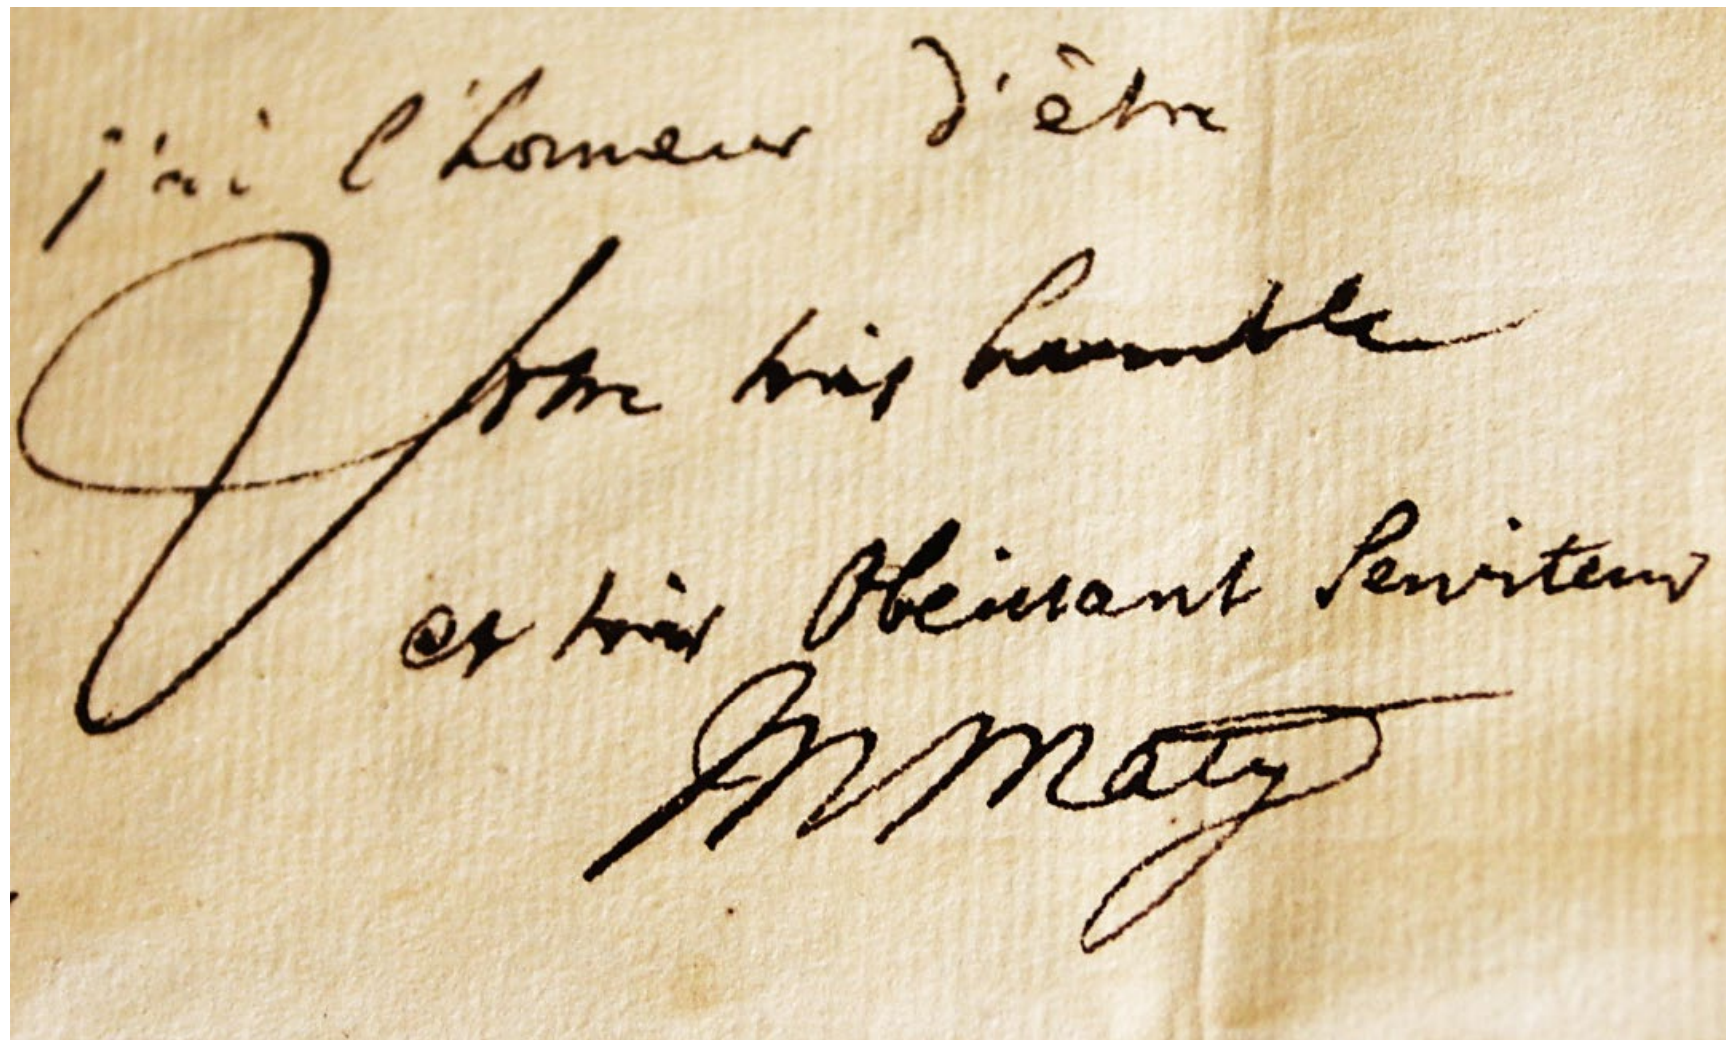 j'ai l'honneur d'être
Votre très humble
et très Obeissant Serviteur
M Maty